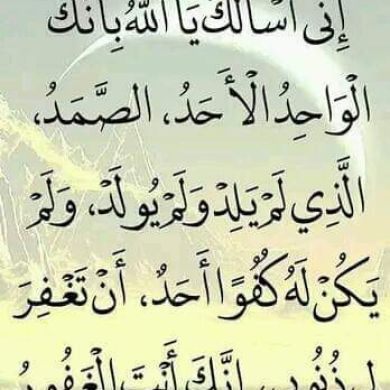 إِنِّي أَسْأَلُكَ يَا اللَّهُ بِأَنَّكَ
الْوَاحِدُ الْأَحَدُ، الصَّمَدُ،
الَّذِي لَمْ يَلِدْ وَلَمْ يُولَدْ، وَلَمْ
يَكُنْ لَهُ كُفُوًا أَحَدٌ، أَنْ تَغْفِرَ
لِي ذُنُوبِي إِنَّكَ أَنْتَ الْغَفُورُ